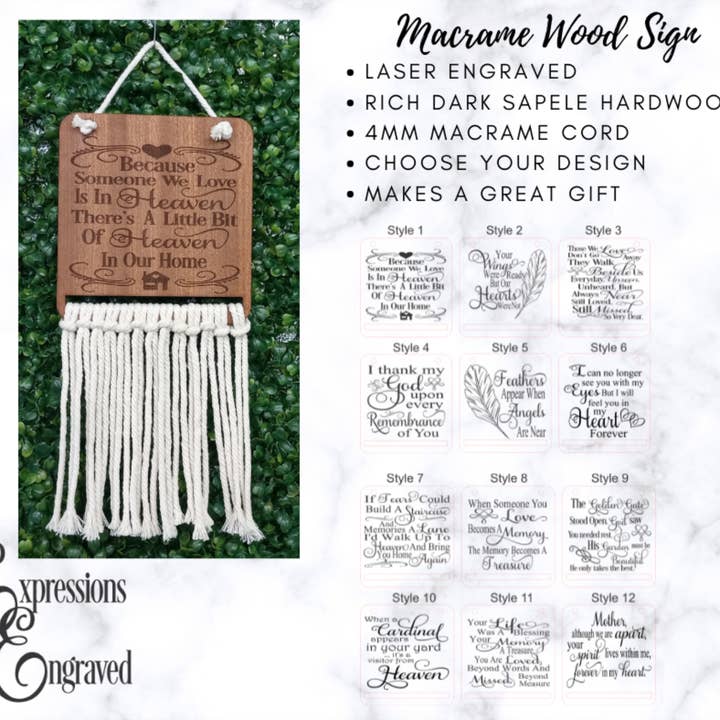 Macrame Wood Sign
• LASER ENGRAVED
• RICH DARK SAPELE HARDWOO
• 4MM MACRAME CORD
• CHOOSE YOUR DESIGN
• MAKES A GREAT GIFT
Because
Someone We Love
Is In Heaven
There's A Little Bit
Of Heaven
In Our Home
Style 1
Because
Someone We Love
Is In Heaven
There's A Little Bit
Of Heaven
In Our Home
Style 2
Your
Wings
Were Ready
But Our
Hearts
Were Not
Style 3
Those We Love
Don't Go Away
They Walk
Beside Us
Everyday, Unseen,
Unheard, But
Always Near
Still Loved,
Still Missed
So Very Dear.
Style 4
I thank my
God
upon
every
Remembrance
of You
Style 5
Feathers
Appear When
Angels
Are Near
Style 6
I can no longer
see you with my
Eyes But I will
feel you in
my
Heart
Forever
Style 7
If Tears Could
Build A Staircase
And
Memories A Lane
I'd Walk Up To
Heaven And Bring
You Home
Again
Style 8
When Someone You
Love
Becomes A Memory,
The Memory Becomes A
Treasure
Style 9
The Golden Gate
Stood Open, God saw
You needed rest.
His Garden must be
Beautiful
He only takes the best.
Style 10
When a
Cardinal
appears
in your yard
... it's a
visitor from
Heaven
Style 11
Your Life
Was A Blessing
Your Memory
A Treasure,
You Are Loved
Beyond Words And
Missed Beyond
Measure
Style 12
Mother,
although we are apart,
your
spirit lives within me,
forever in my heart.
Expressions
Engraved